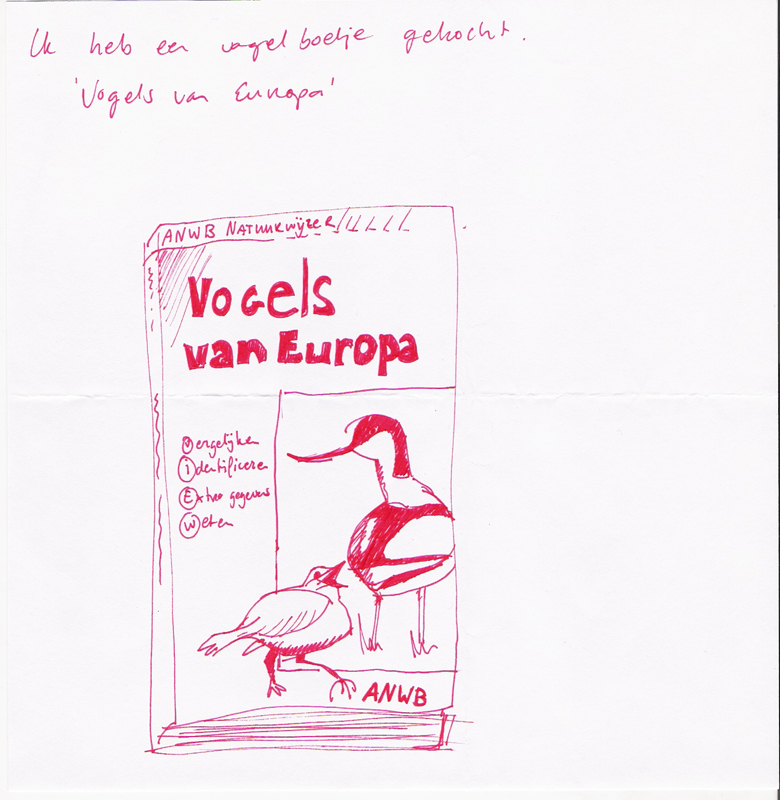 Ik heb een vogelboekje gekocht.
'Vogels van Europa'
ANWB NATUURWijzer
Vogels
van Europa
Vergelijken
Identificeren
Extra gegevens
Weten
ANWB